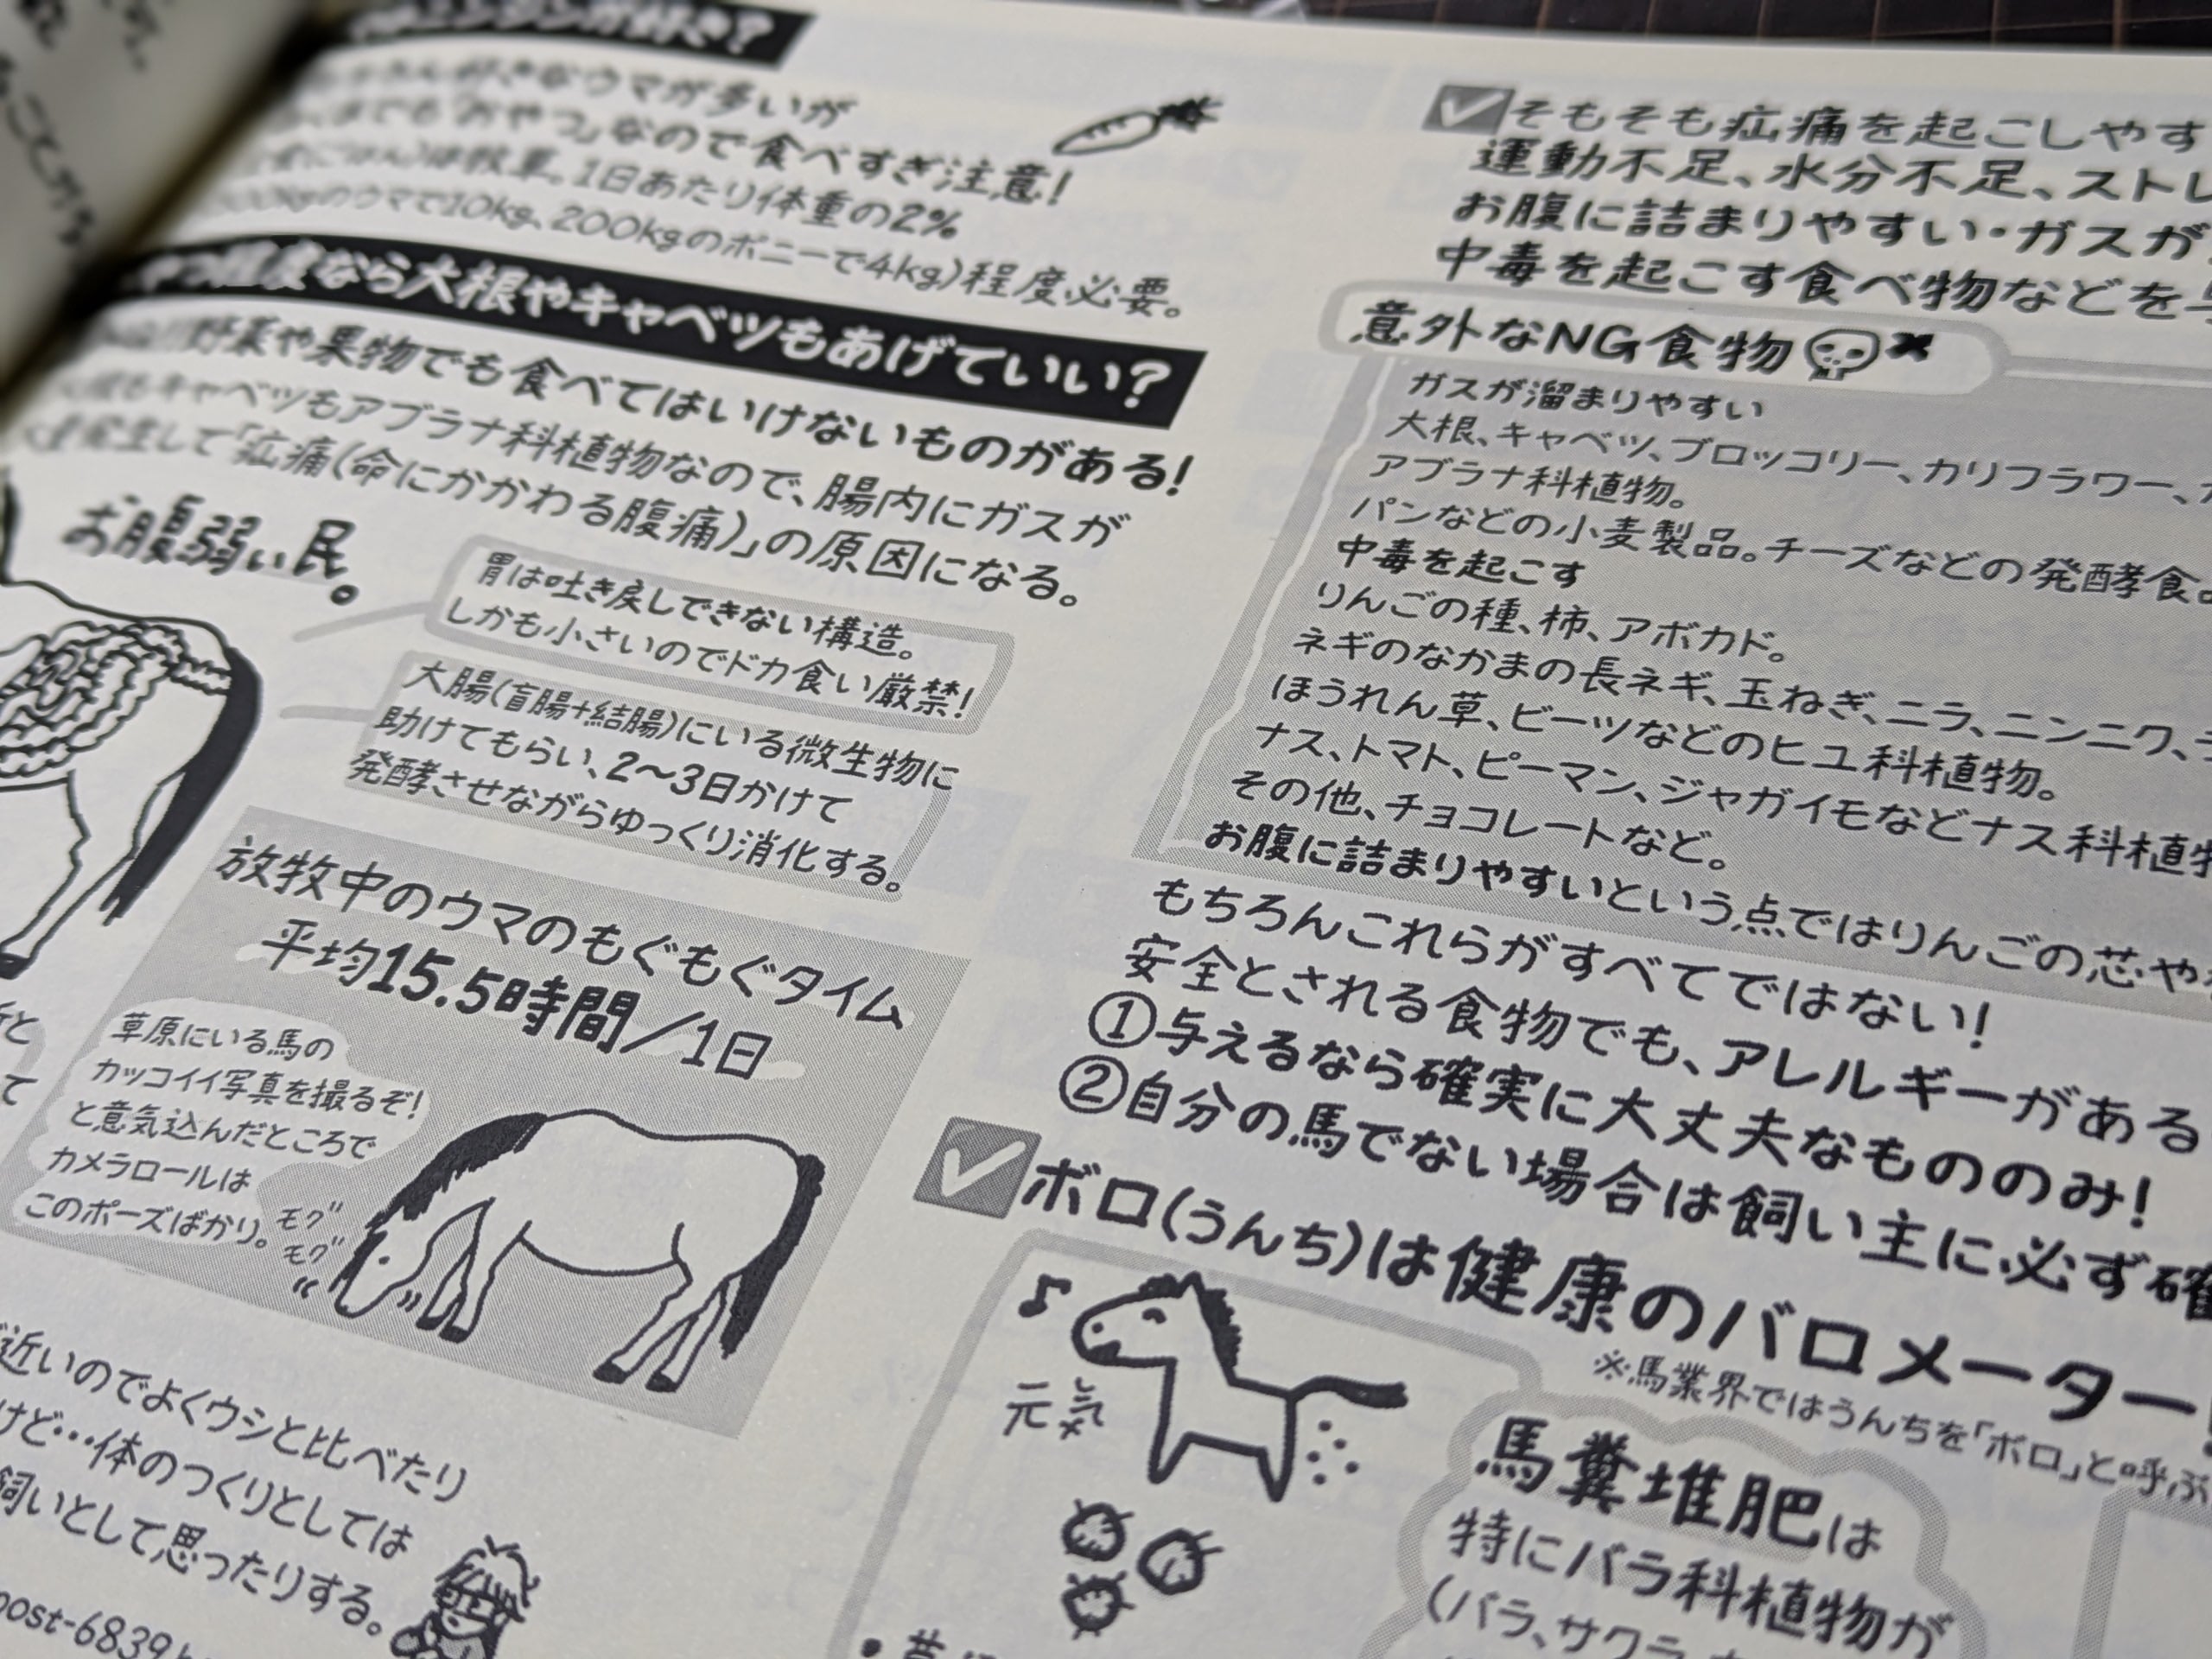 ニンジンが好き?
好きなウマが多いが
までも「おやつ」なので食べすぎ注意!
は牧草。1日あたり体重の2%
kgのウマで10kg、200kgのポニーで4kg)程度必要。
程度なら大根やキャベツもあげていい?
野菜や果物でも食べてはいけないものがある!
もキャベツもアブラナ科植物なので、腸内にガスが
発生して「疝痛(命にかかわる腹痛)」の原因になる。
お腹弱い民。
胃は吐き戻しできない構造。
しかも小さいのでドカ食い厳禁!
大腸(盲腸+結腸)にいる微生物に
助けてもらい、2〜3日かけて
発酵させながらゆっくり消化する。
放牧中のウマのもぐもぐタイム
平均15.5時間/1日
草原にいる馬の
カッコイイ写真を撮るぞ!
と意気込んだところで
カメラロールは
このポーズばかり。
モグ"
モグ"
近いのでよくウシと比べたり
けど…体のつくりとしては
飼いとして思ったりする。
post-6839
そもそも疝痛を起こしやす
運動不足、水分不足、ストレ
お腹に詰まりやすい・ガスが
中毒を起こす食べ物などを
意外なNG食物
ガスが溜まりやすい
大根、キャベツ、ブロッコリー、カリフラワー、
アブラナ科植物。
パンなどの小麦製品。チーズなどの発酵食品
中毒を起こす
りんごの種、柿、アボカド。
ネギのなかまの長ネギ、玉ねぎ、ニラ、ニンニク、
ほうれん草、ビーツなどのヒユ科植物。
ナス、トマト、ピーマン、ジャガイモなどナス科植物
その他、チョコレートなど。
お腹に詰まりやすいという点ではりんごの芯や
もちろんこれらがすべてではない!
安全とされる食物でも、アレルギーがある
①与えるなら確実に大丈夫なもののみ!
②自分の馬でない場合は飼い主に必ず確
ボロ(うんち)は健康のバロメーター!
※馬業界ではうんちを「ボロ」と呼ぶ
♪
元気
馬糞堆肥は
特にバラ科植物が
(バラ、サクラ、